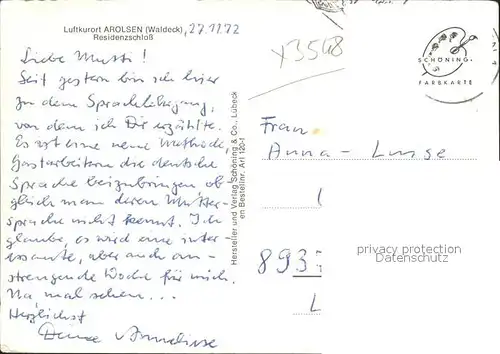 Luftkurort AROLSEN (Waldeck), 27.11.72
Residenzschloß
Liebe Mutti!
Seit gestern bin ich hier
zu dem Sprachlehrgang,
von dem ich Dir erzählte.
Es ist eine neue Methode,
Gastarbeitern die deutsche
Sprache beizubringen ob
gleich man deren Mutter-
sprache nicht kennt. Ich
glaube, es wird eine inter
essante, aber auch an-
strengende Woche für mich.
Na, mal sehen...
Herzlichst
Deine Anneliese
Hersteller und Verlag Schöning & Co., Lübeck
en Bestellnr. Arl 120-1
x3548
SCHÖNING
FARBKARTE
Frau
Anna-Luise
893
L
privacy protection
Datenschutz